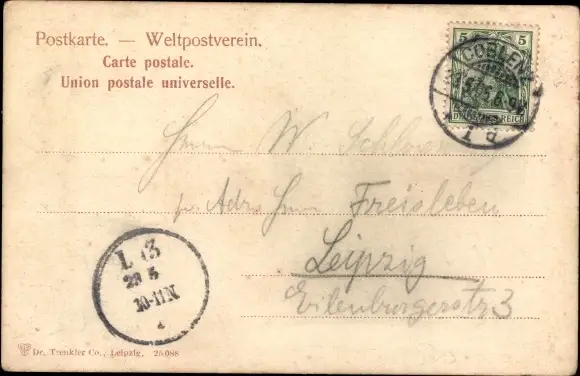 Postkarte. — Weltpostverein.
Carte postale.
Union postale universelle.
5 5
COBLENZ
1 d
Herrn W.
per Adr. Herrn Freisleben
Leipzig
Eilenburgerstr 3
L 13
28 5
10-11 N.
Dr. Trenkler Co., Leipzig. 25088